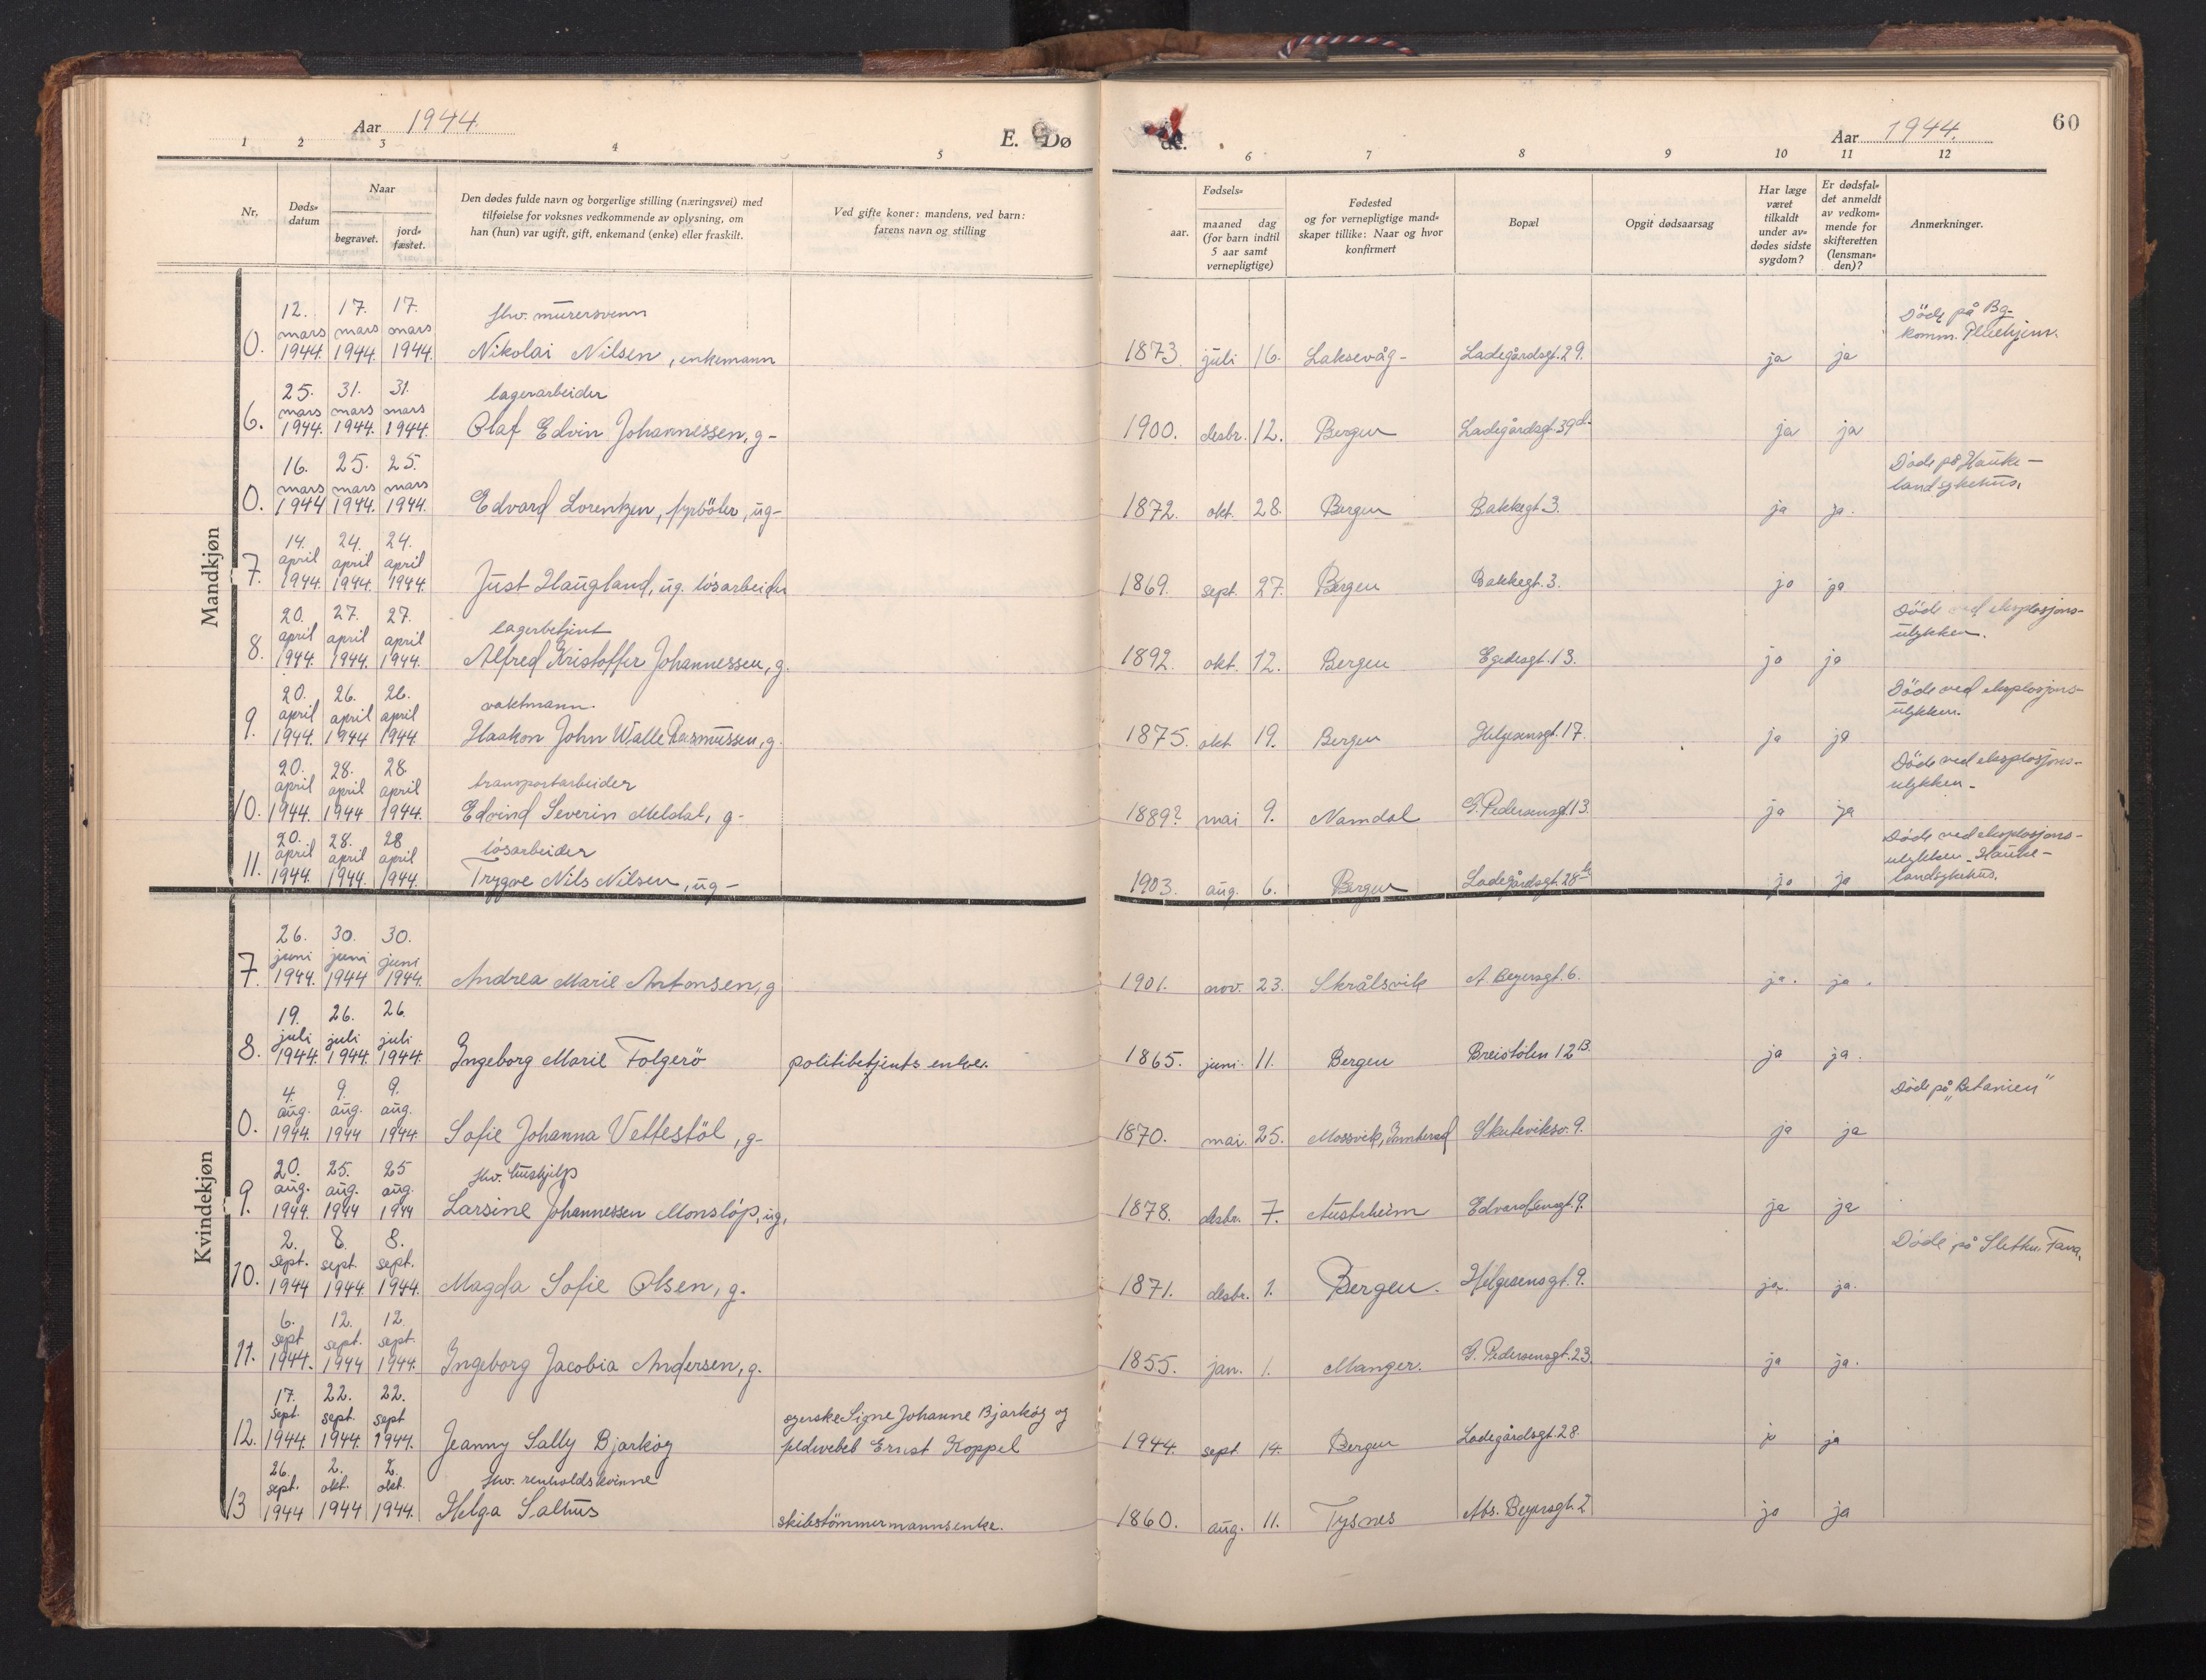 Aar 1944.
E. Dø
de.
Aar 1944.
60
1 2 3 4 5 6 7 8 9 10 11 12
Nr.
Døds-
datum
Naar
begravet.
jord-
fæstet.
Den dødes fulde navn og borgerlige stilling (næringsvei) med
tilføielse for voksnes vedkommende av oplysning, om
han (hun) var ugift, gift, enkemand (enke) eller fraskilt.
Ved gifte koner: mandens, ved barn:
farens navn og stilling
Fødsels-
aar.
maaned
(for barn indtil
5 aar samt
vernepligtige)
dag
Fødested
og for vernepligtige mand-
skaper tillike: Naar og hvor
konfirmert
Bopæl
Opgit dødsaarsag
Har læge
været
tilkaldt
under av-
dødes sidste
sygdom?
Er dødsfal-
det anmeldt
av vedkom-
mende for
skifteretten
(lensman-
den)?
Anmerkninger.
Mandkjøn
12. 17. 17. fhv. murersvenn Döde på Bg.
mars mars mars komm. Pleiehjem.
0. 1944. 1944. 1944. Nikolai Nilsen, enkemann 1873 juli 16. Laksevåg - Ladegårdsgt. 29. ja ja
25. 31. 31. lagerarbeider
mars mars mars
6. 1944. 1944. 1944. Olaf Edvin Johannessen, g- 1900. desbr. 12. Bergen Ladegårdsgt. 39d. ja ja
16. 25. 25. Döde på Hauke-
mars mars mars landsykehus.
0. 1944 1944. 1944. Edvard Lorentzen, fyrböter, ug- 1872. okt. 28. Bergen Bakkegt 3. ja ja.
14. 24. 24.
april april april
7. 1944. 1944. 1944. Just Haugland, ug. lösarbeider 1869. sept. 27. Bergen Bakkegt. 3. ja ja
20. 27. 27. lagerbetjent Döde ved eksplosjons-
april april april ulykken.
8. 1944. 1944. 1944. Alfred Kristoffer Johannessen, g. 1892. okt. 12. Bergen Egedesgt. 13. ja ja
20. 26. 26. vaktmann. Döde ved eksplosjons-
april april april ulykken.
9. 1944. 1944 1944. Haakon John Walle Rasmussen, g. 1875. okt 19. Bergen Helgesensgt. 17. ja ja
20. 28. 28. transportarbeider Döde ved eksplosjons-
april april april ulykken-
10. 1944. 1944 1944. Edvind Severin Meldal, g- 1889? mai 9. Namdal G. Pedersensgt. 13. ja ja
20. 28. 28 lösarbeider Döde ved eksplosjons-
april april april ulykken - Hauke-
11. 1944. 1944. 1944. Trygve Nils Nilsen, ug- 1903. aug. 6. Bergen Ladegårdsgt. 28 ja ja landsykehus.
Kvindekjøn
26. 30. 30.
juni juni juni
7. 1944. 1944 1944. Andrea Marie Antonsen, g 1901. nov. 23. Skrålsvik A Beyersgt. 6. ja. ja.
19. 26. 26.
juli juli juli
8. 1944. 1944. 1944. Ingeborg Marie Folgerö politibetjents enke. 1865. juni. 11. Bergen Breistölen 12B. ja ja.
4. 9. 9. Döde på „Betanien"
aug. aug. aug.
0. 1944. 1944 1944. Sofie Johanna Vettestöl, g- 1870. mai. 25. Mossvik, Innherad Skuteviksv. 9. ja ja
20. 25. 25 fhv. hushjelp
aug. aug. aug.
9. 1944. 1944 1944 Larsine Johannessen Monslöp, ug, 1878. desbr. 7. Austrheim Edvardsensgt. 9. ja ja
2. 8. 8. Döde på Slettn. Fana.
sept. sept sept.
10. 1944 1944. 1944. Magda Sofie Olsen, g. 1871. desbr. 1. Bergen. Helgesensgt. 9. ja. ja.
6. 12. 12.
sept sept. sept.
11. 1944. 1944 1944. Ingeborg Jacobia Andersen, g. 1855. jan. 1. Manger. G. Pedersensgt. 23. ja ja.
17. 22. 22.
sept. sept. sept syerske Signe Johanne Bjarköy og
12. 1944. 1944. 1944. Jeanny Sally Bjarköy feldwebel Ernst Koppel 1944. sept 14. Bergen Ladegårdsgt. 28. ja ja
26. 2. 2. fhv. renholdskvinne
sept. okt. okt.
13 1944 1944 1944. Helga Salhus skibstömmermannsenke. 1860. aug. 11. Tysnes Abs. Beyersgt. 2 ja ja